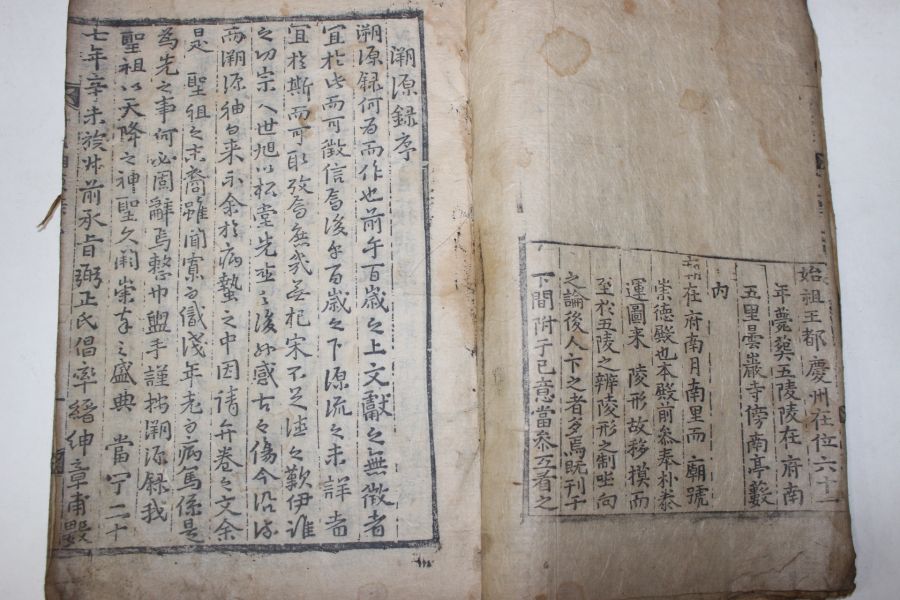 始祖王都慶州在位六十一
年薨葬五陵陵在府南
五里曇巖寺傍南亭藪
內
廟在府南月南里而廟號
崇德殿也本殿前參奉朴泰
運圖來陵形故移模而
至於五陵之辨陵形之制坐向
之論後人卞之者多焉旣刊于
下間附于己意當參互看之
溯源錄序
溯源錄何爲而作也前乎百歲之上文獻之無徵者
宜於此而可徵信焉後乎百歲之下源流之未詳者
宜於斯而可取攷焉無幾無杞宋不足徵之歎伊誰
之功宗人世旭以松堂先並之後外感古今傷今沿流
而溯源袖自來示余於病蟄之中因請弁卷之文余
是聖祖之末裔雖聞寡而識淺年老而病篤係是
爲先之事何必固辭焉整巾盥手謹按溯源錄我
聖祖以天降之神聖久闕崇奉之盛典當宁二十
七年辛未旅艸前承旨弼正氏倡率縉紳章甫